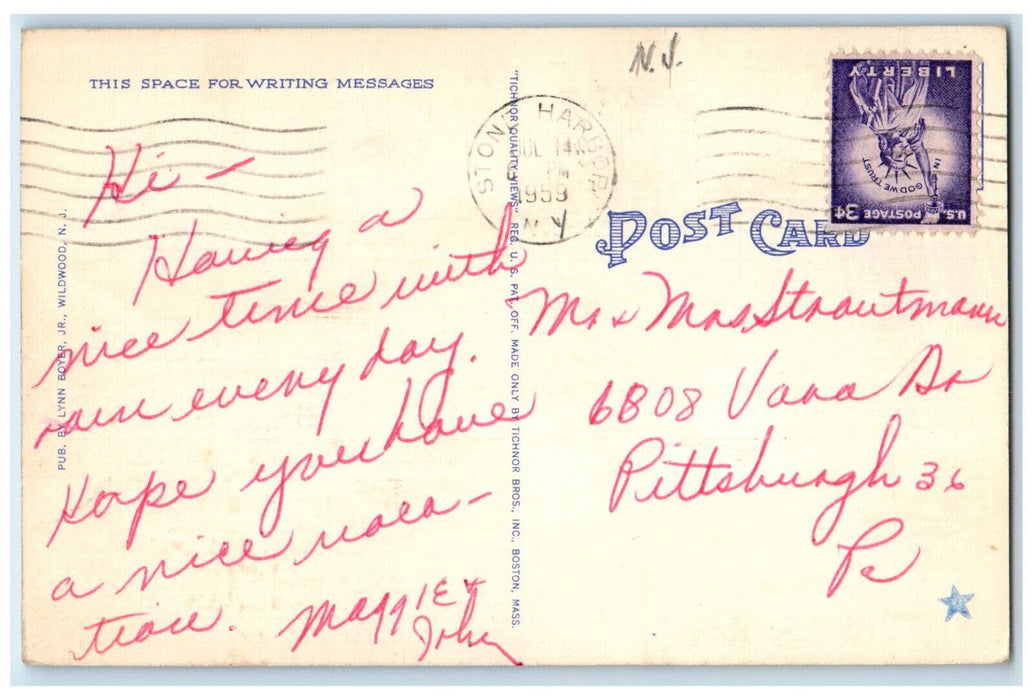 THIS SPACE FOR WRITING MESSAGES
Hi -
Having a
nice time with
rain every day.
Hope you have
a nice vaca-
tion. Maggie &
John
PUB. BY LYNN BOYER, JR., WILDWOOD, N. J.
"TICHNOR QUALITY VIEWS" REG. U. S. PAT. OFF. MADE ONLY BY TICHNOR BROS., INC., BOSTON, MASS.
N.J.
STONE HARBOR
JUL 14
PM
1959
N Y
LIBERTY
IN GOD WE TRUST
U.S. POSTAGE 3¢
POST CARD
Mr & Mrs Strautmann
6808 Vana Dr
Pittsburgh 36
Pa